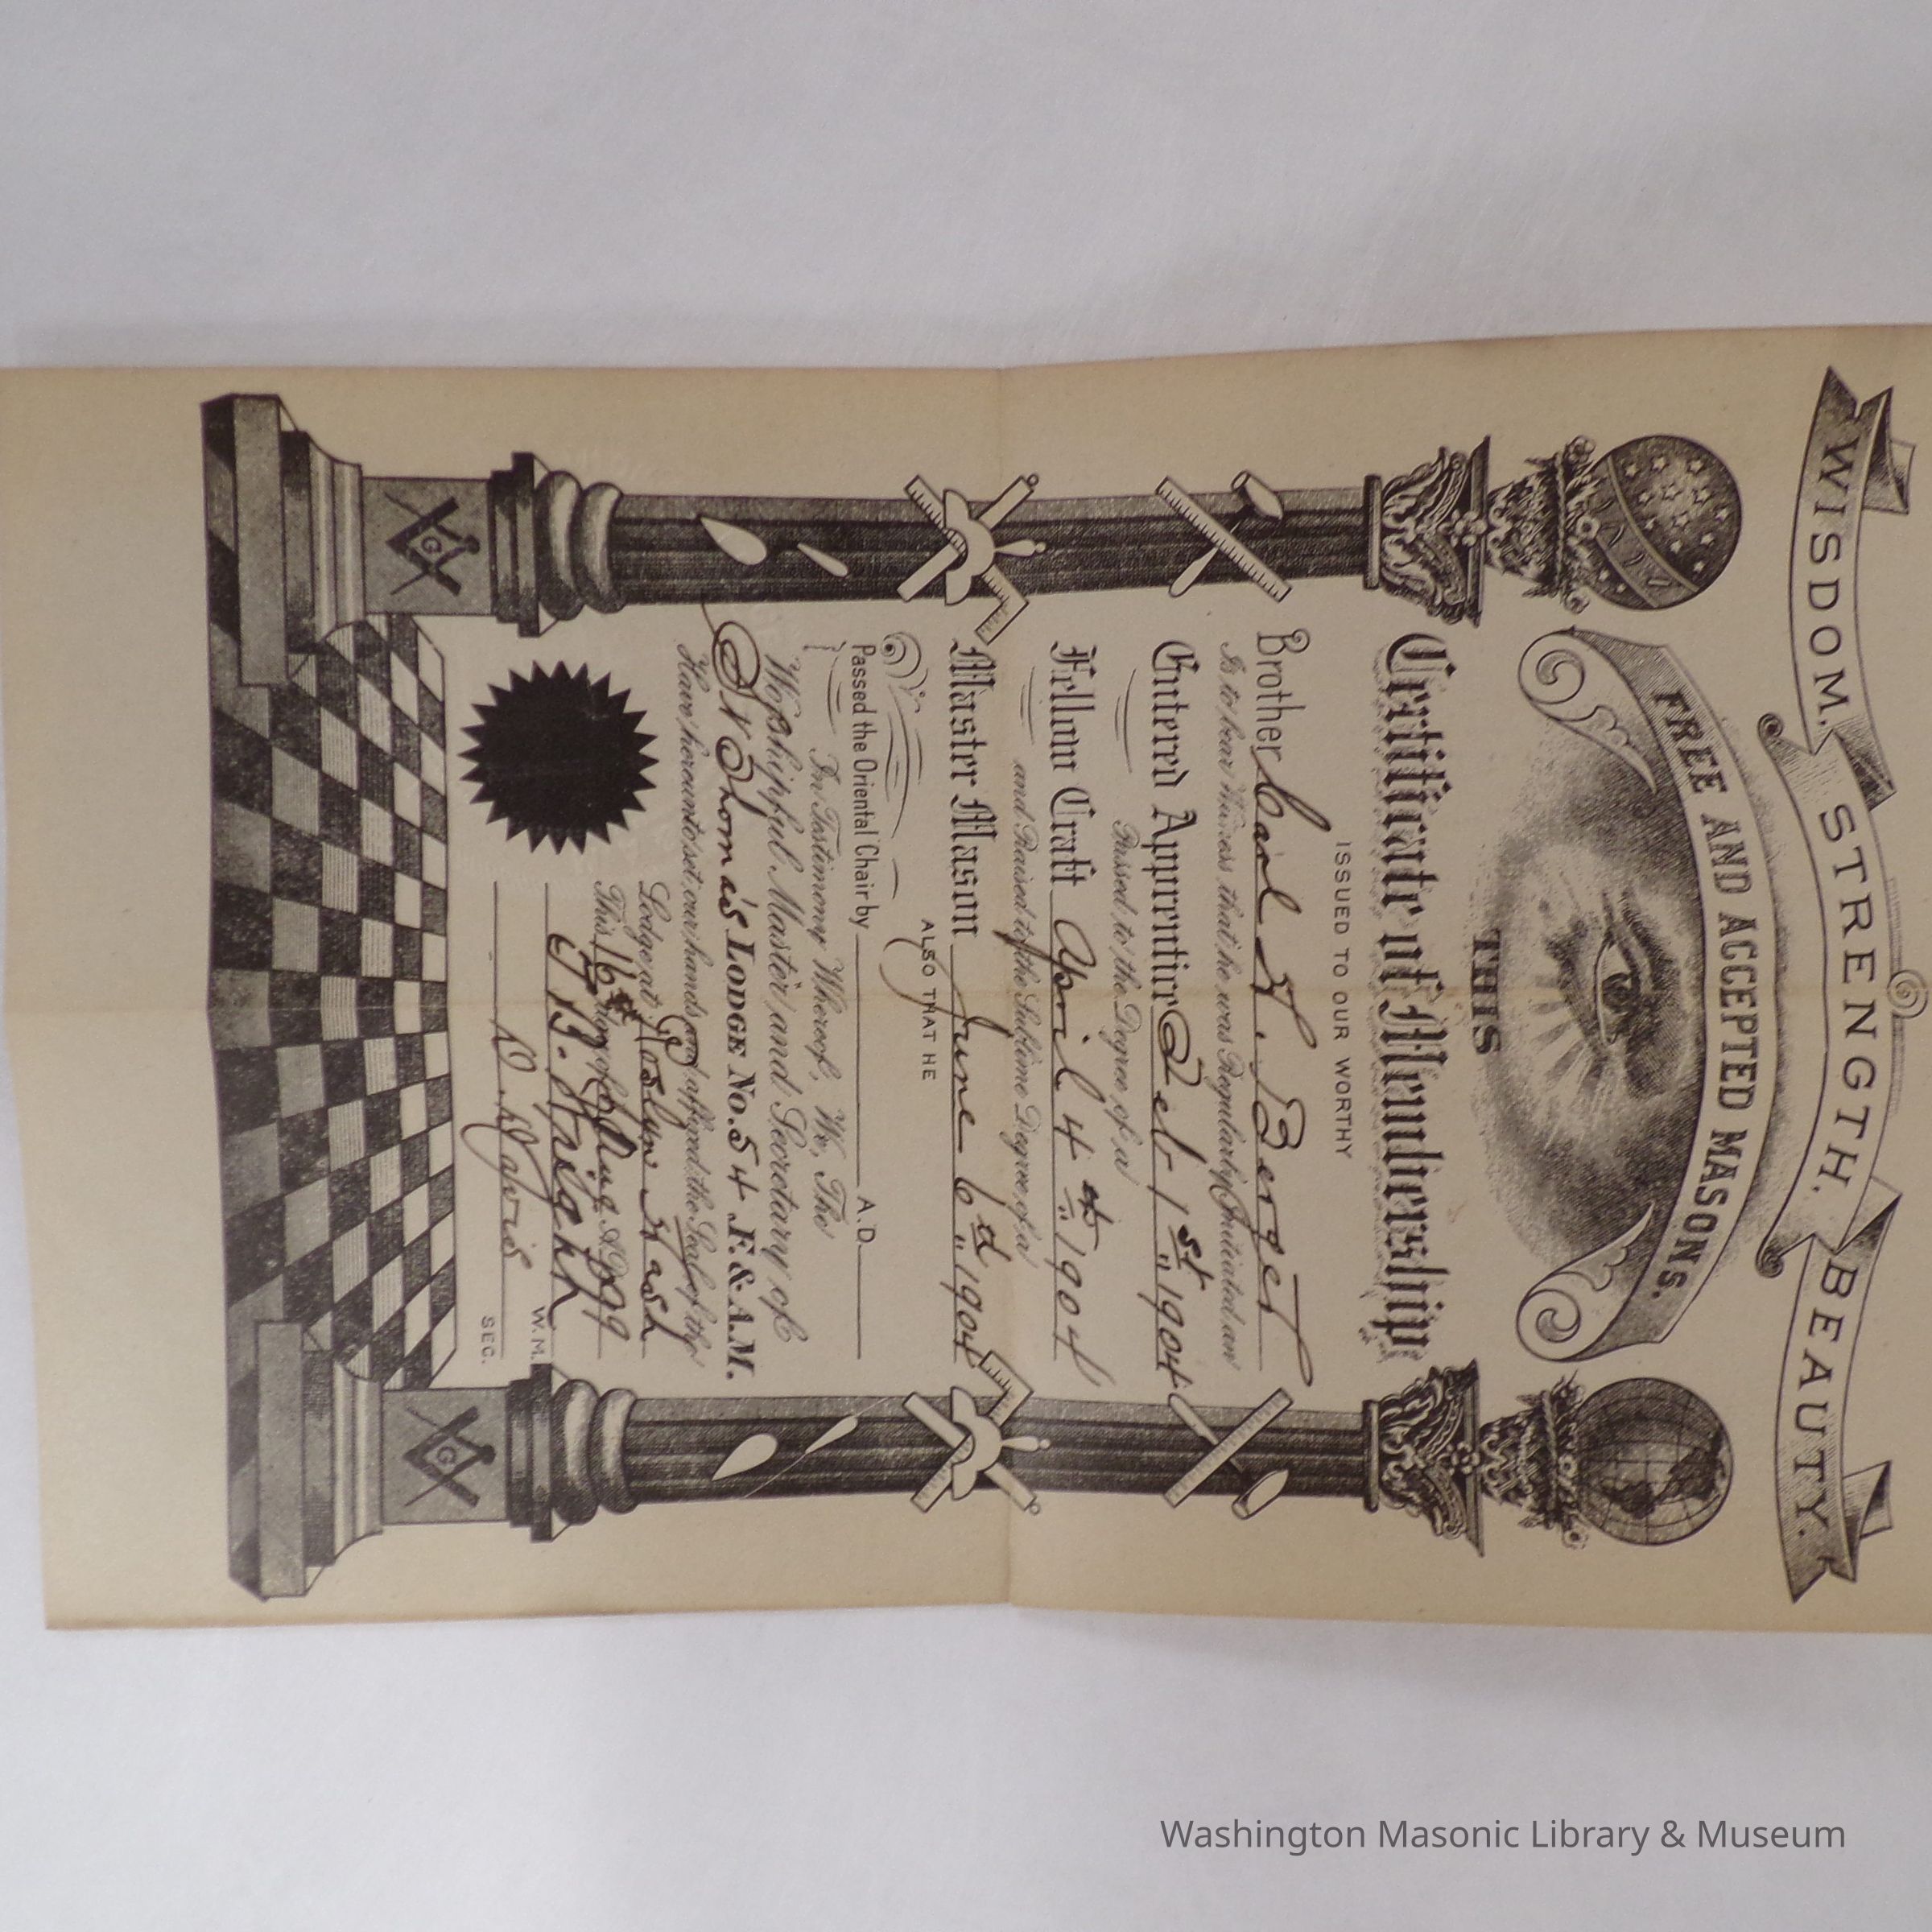 WISDOM. STRENGTH. BEAUTY.
FREE AND ACCEPTED MASONS.
THIS
Certificate of Membership
ISSUED TO OUR WORTHY
Brother Carl A. Berget
Is to bear Witness that he was Regularly Initiated an
Entered Apprentice Feb 1st 1904
Passed to the Degree of a
Fellow Craft April 4th 1904
and Raised to the Sublime Degree of a
Master Mason June 6th 1904
ALSO THAT HE
Passed the Oriental Chair by A.D.
In Testimony Whereof, We, The
Worshipful Master and Secretary of
St Thomas LODGE No. 54 F. & A.M.
Have hereunto set our hands and affixed the Seal of the
Lodge at Roslyn Wash
This 16th day of A.D.
Knight W.M.
D. Davis SEC.
G
G
Washington Masonic Library & Museum